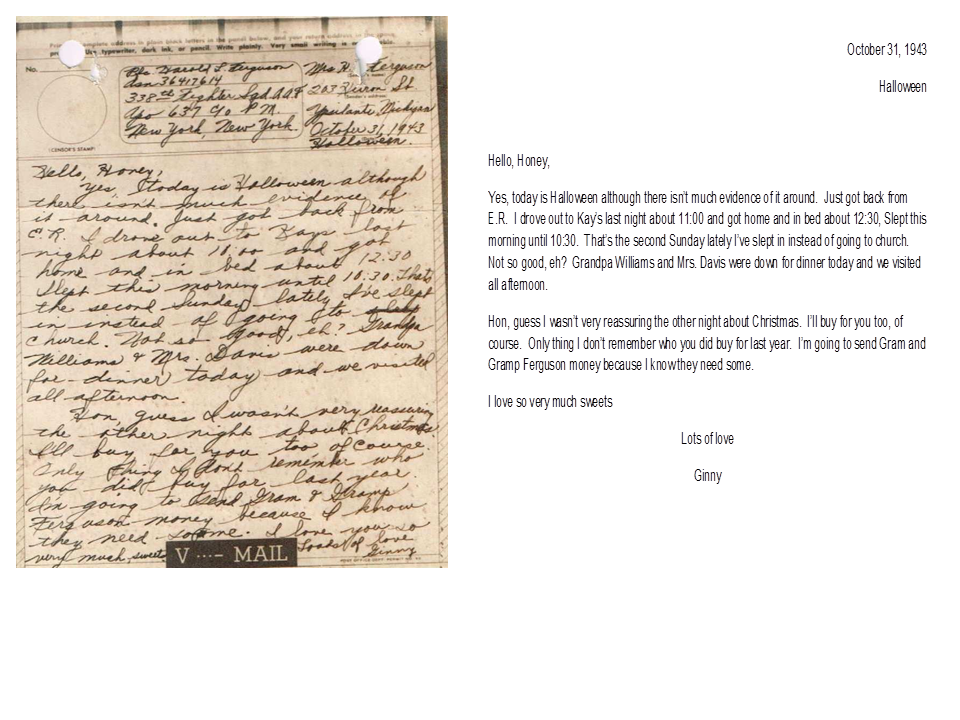 Print the complete address in plain block letters in the panel below, and your return address in the space
provided. Use typewriter, dark ink, or pencil. Write plainly. Very small writing is not suitable.
No.
(CENSOR'S STAMP)
Pfc. Harold L Ferguson
Asn 36417614
338th Fighter Sqd. A.A.F
Apo 637 c/o P.M.
New York, New York.
Mrs H. Ferguson
203 Huron St.
Ypsilanti, Michigan
October 31, 1943
Halloween.
Hello, Honey,
Yes, today is Halloween although
there isn't much evidence of
it around. Just got back from
E.R. I drove out to Kays last
night about 11:00 and got
home and in bed about 12:30
Slept this morning until 10:30. That's
the second Sunday lately I've slept
in instead of going to
church. Not so good, eh? Grandpa
Williams & Mrs. Davis were down
for dinner today and we visited
all afternoon.
Hon, guess I wasn't very reassuring
the other night about Christmas.
I'll buy for you too of course.
Only thing I dont remember who
you did buy for last year
I'm going to send Gram & Gramp
Ferguson money because I know
they need some. I love you so
very much, sweet
Loads of love
Ginny
V ···– MAIL
October 31, 1943
Halloween
Hello, Honey,
Yes, today is Halloween although there isn't much evidence of it around. Just got back from
E.R. I drove out to Kay's last night about 11:00 and got home and in bed about 12:30, Slept this
morning until 10:30. That's the second Sunday lately I've slept in instead of going to church.
Not so good, eh? Grandpa Williams and Mrs. Davis were down for dinner today and we visited
all afternoon.
Hon, guess I wasn't very reassuring the other night about Christmas. I'll buy for you too, of
course. Only thing I don't remember who you did buy for last year. I'm going to send Gram and
Gramp Ferguson money because I know they need some.
I love so very much sweets
Lots of love
Ginny